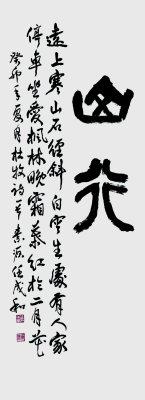 山行
遠上寒山石徑斜白雲生處有人家
停車坐愛楓林晚霜葉紅於二月花
癸卯年夏月杜牧诗一首 成和